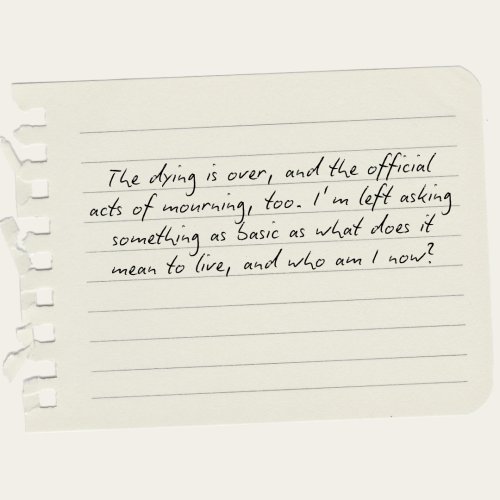 The dying is over, and the official
acts of mourning, too. I'm left asking
something as basic as what does it
mean to live, and who am I now?